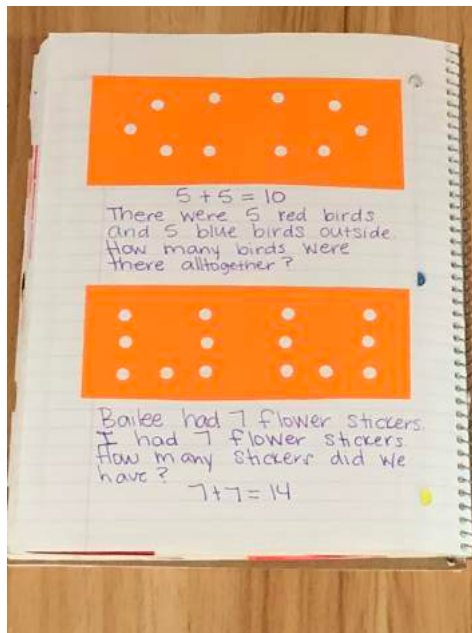 5 + 5 = 10
There were 5 red birds
and 5 blue birds outside.
How many birds were
there alltogether?
Bailee had 7 flower stickers.
I had 7 flower stickers
How many stickers did we
have?
7+7= 14